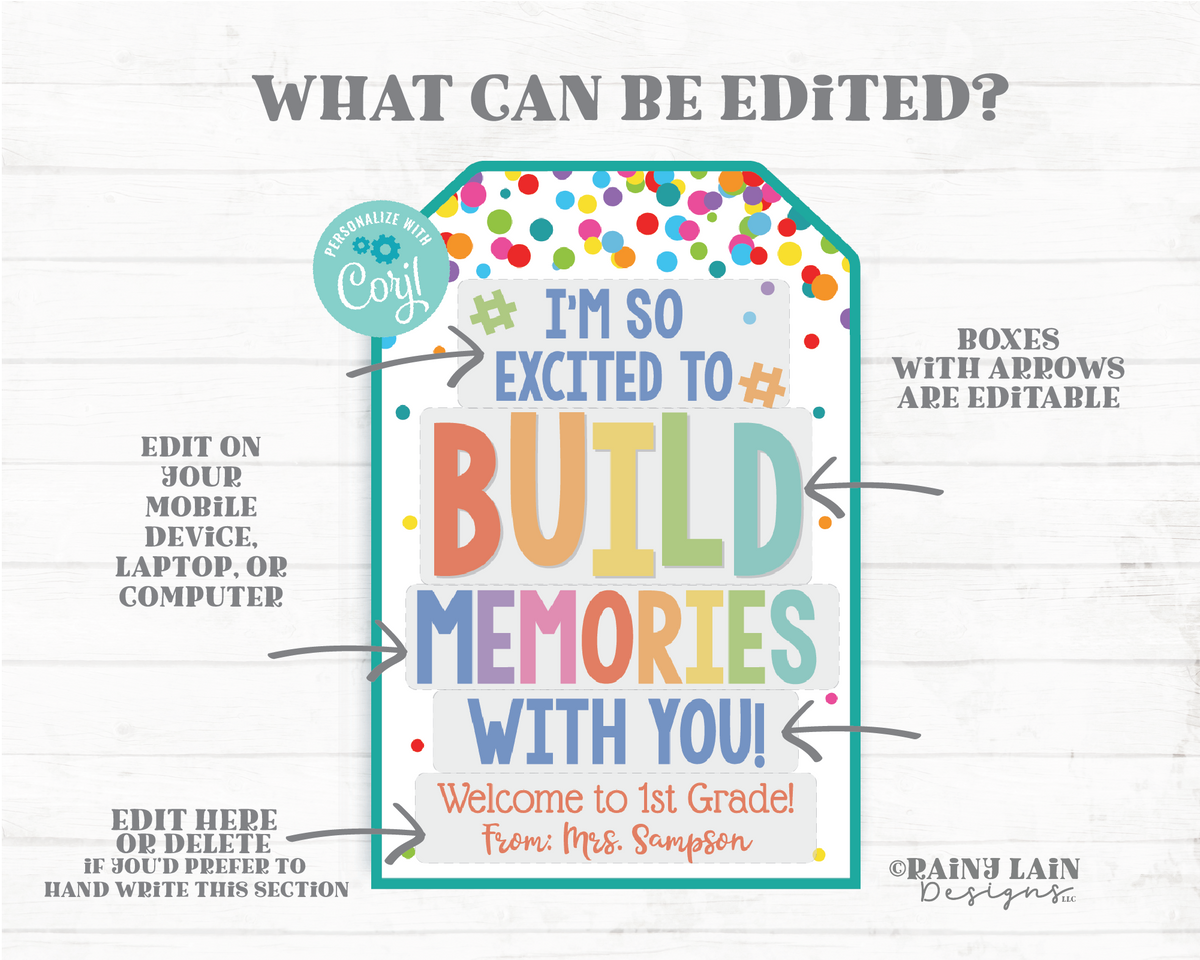 WHAT CAN BE EDiTED?
PERSONALIZE WITH
Corjl
I'M SO
EXCITED TO
BUILD
MEMORIES
WITH YOU!
Welcome to 1st Grade!
From: Mrs. Sampson
BOXES
WiTH ARROWS
ARE EDiTABLE
EDIT ON
YOUR
MOBiLE
DEViCE,
LAPTOP, OR
COMPUTER
EDIT HERE
OR DELETE
iF YOU'D PREFER TO
HAND WRiTE THiS SECTiON
©RAiNY LAiN
Designs LLC